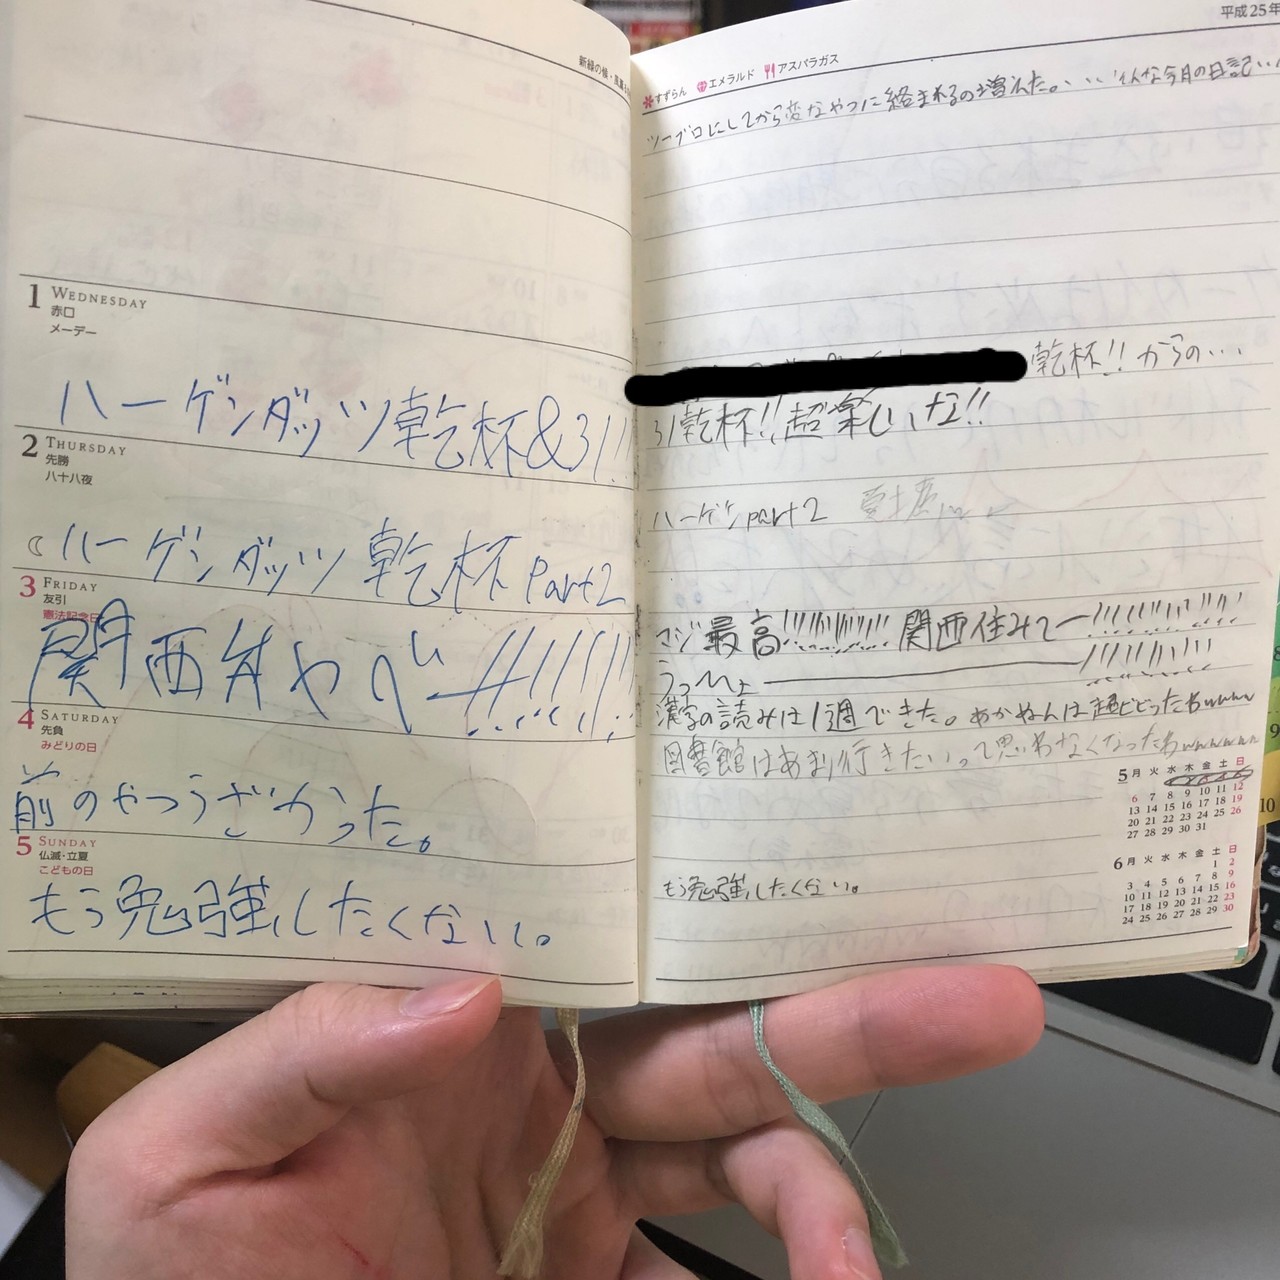 新緑の候・風薫
1 WEDNESDAY
赤口
メーデー
ハーゲンダッツ乾杯&31!!
2 THURSDAY
先勝
八十八夜
ハーゲンダッツ乾杯 part2
3 FRIDAY
友引
憲法記念日
関西弁やべー!!!!!!!
4 SATURDAY
先負
みどりの日
前のやつうざかった。
5 SUNDAY
仏滅・立夏
こどもの日
もう勉強したくない。
平成25年
すずらん エメラルド アスパラガス
ツーブロにしてから変なやつに絡まれるの増えた。・・・そんな今月の日記・・・
乾杯!!からの・・・
31乾杯!!超楽しいな!!
ハーゲンpart2
マジ最高!!!!!!!!!!! 関西住みてー!!!!!!!!!!
うっひょ――――!!!!!!!!!
漢字の読みは1週できた。あかねんは超ビビったわwwww
図書館はあまり行きたいって思わなくなったわwwwwww
5 月 火 水 木 金 土 日
6 7 8 9 10 11 12
13 14 15 16 17 18 19
20 21 22 23 24 25 26
27 28 29 30 31
もう勉強したくない。
6 月 火 水 木 金 土 日
1 2
3 4 5 6 7 8 9
10 11 12 13 14 15 16
17 18 19 20 21 22 23
24 25 26 27 28 29 30
8
9
10